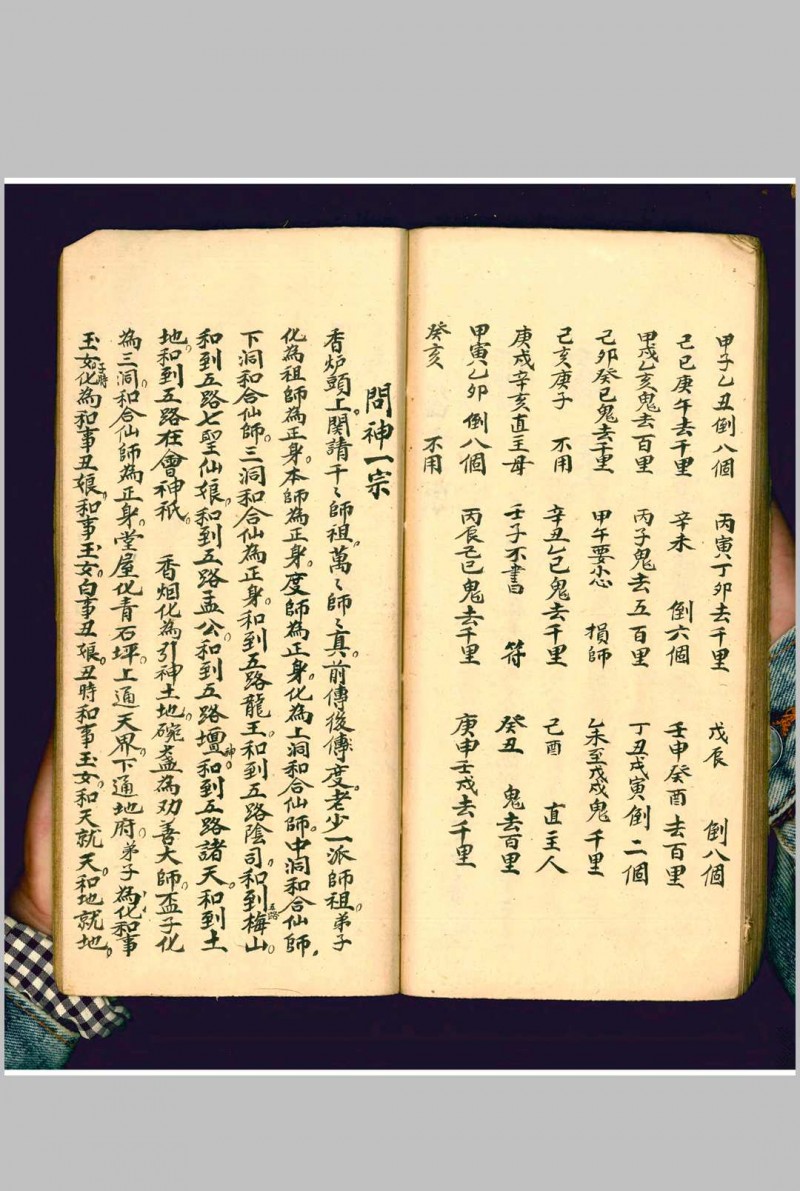 甲子乙丑倒八個　丙寅丁卯去千里　戊辰　倒八個
己巳庚午去千里　辛未　倒六個　壬申癸酉去百里
甲戌乙亥鬼去百里　丙子鬼去五百里　丁丑戊寅倒二個
己卯癸巳鬼去千里　甲午要小心　損師　乙未至戊戌鬼千里
己亥庚子　不用　辛丑乙巳鬼去千里　己酉　直主人
庚戌辛亥直主母　壬子不書　符　癸丑　鬼去百里
甲寅乙卯倒八個　丙辰己巳鬼去千里　庚申壬戌去千里
癸亥　不用
問神一宗
香炉頭上。関請千〻師祖。萬〻師〻真。前傳後傳度。老少一派師祖。弟子
化為祖師為正身。本師為正身。度師為正身。化為上洞和合仙師。中洞和合仙師。
下洞和合仙師。三洞和合仙為正身。和到五路龍王。和到五路陰司。和到五路梅山。
和到五路七聖仙娘。和到五路孟公。和到五路壇神。和到五路諸天。和到土
地。和到五路在會神祇。　香烟化為引神土地。碗盖為劝善大師。盃子化
為三洞和合仙師為正身。堂屋化青石坪。上通天界。下通地府。弟子為化和事
玉女。丑時化為和事丑娘。和事玉女。白事丑娘。丑時和事玉女。和天就天。和地就地。